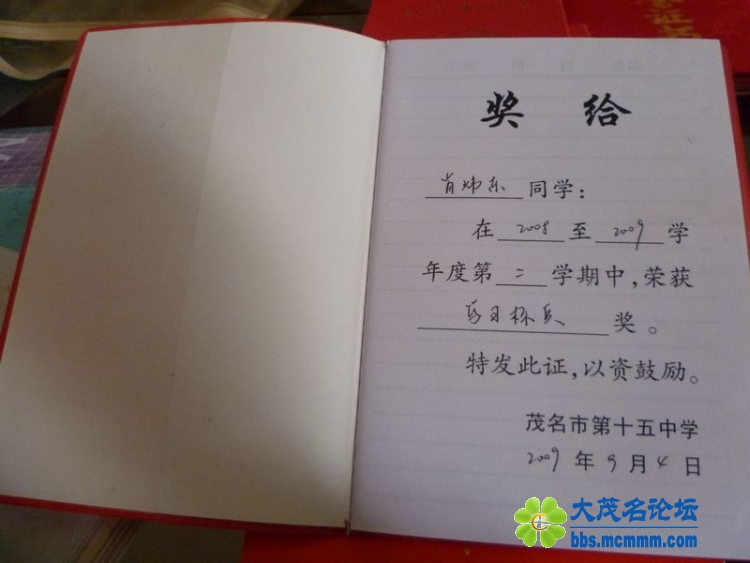 奖 给
肖炜东 同学：
在 2008 至 2009 学
年度第 二 学期中，荣获
学习标兵 奖。
特发此证，以资鼓励。
茂名市第十五中学
2009 年 9 月 4 日
大茂名论坛
bbs.mcmmm.com